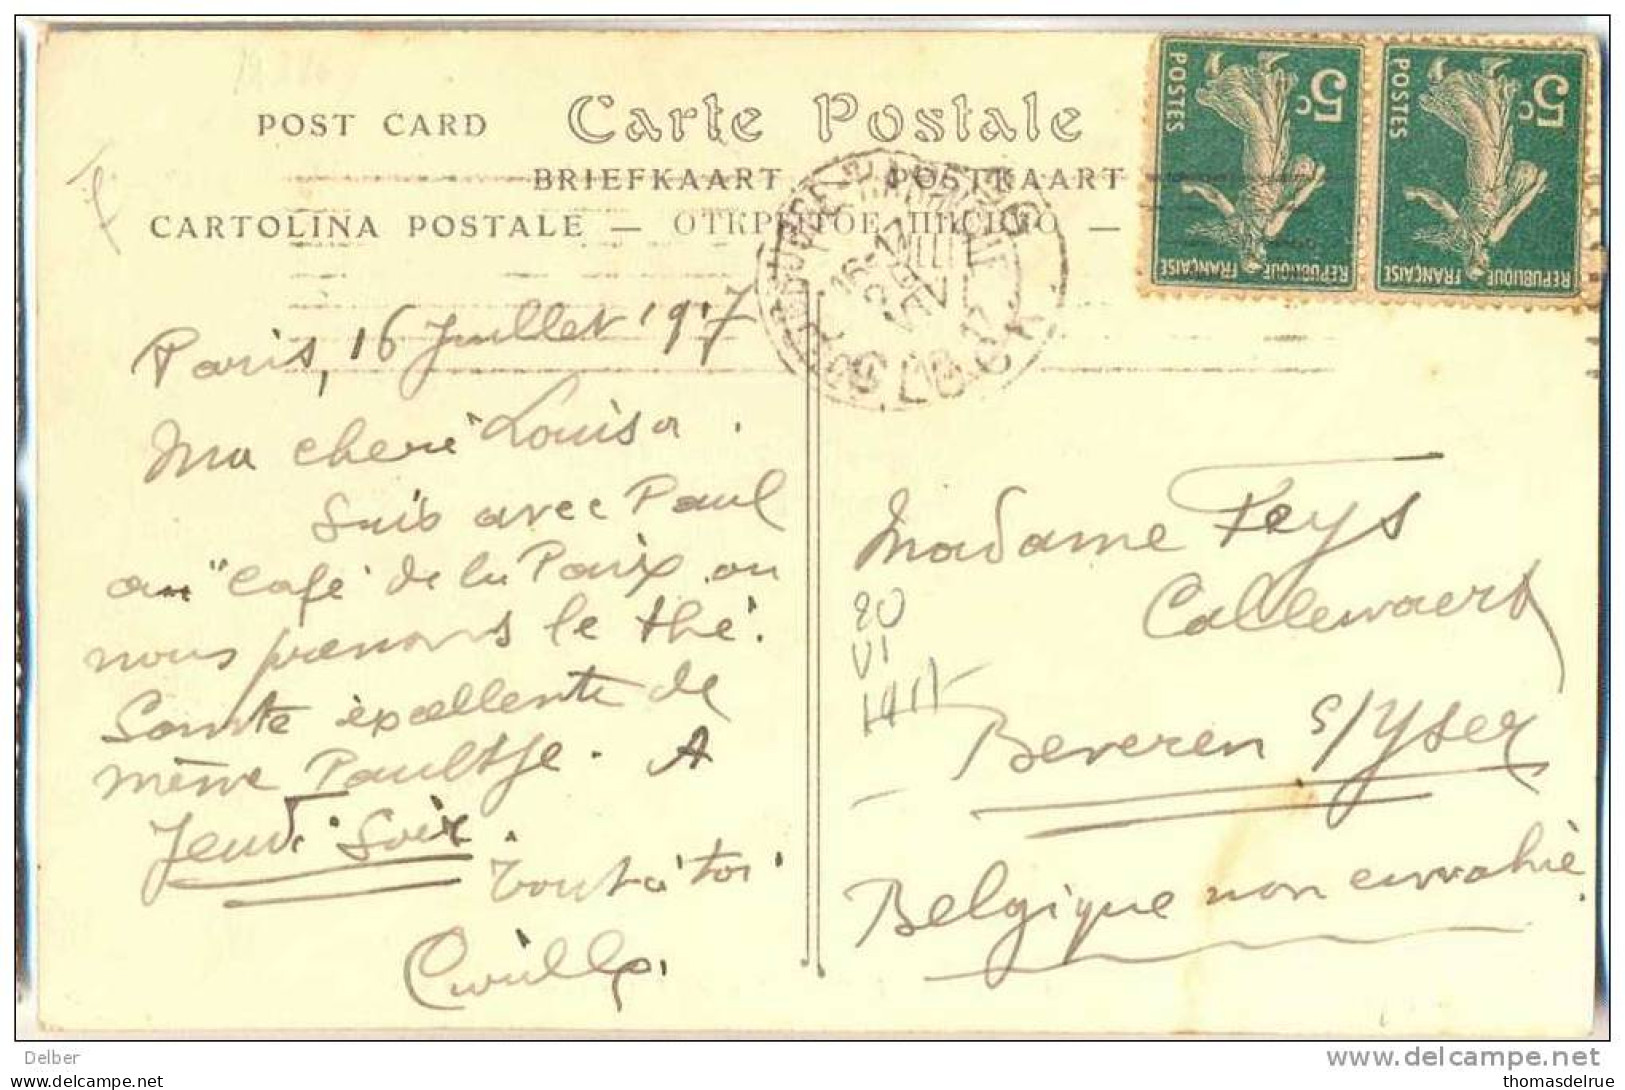 POST CARD Carte Postale
BRIEFKAART — POSTKAART
CARTOLINA POSTALE — ОТКРЫТОЕ ПИСЬМО —
5c
POSTES
REPUBLIQUE FRANÇAISE
5c
POSTES
REPUBLIQUE FRANÇAISE
16-17
Paris, 16 Juillet 1917
Ma cheré Louisa.
Suis avec Paul
au "Café de la Paix ou
nous prenons le thé.
Sante excellente de
même Paultje. A
Jeudi Soir.
Tout à toi
Madame Feys
Callewaert
Beveren s/Yser
Belgique non envahie.
20
VI
Delber
www.delcampe.net
http://www.delcampe.net
thomasdelrue